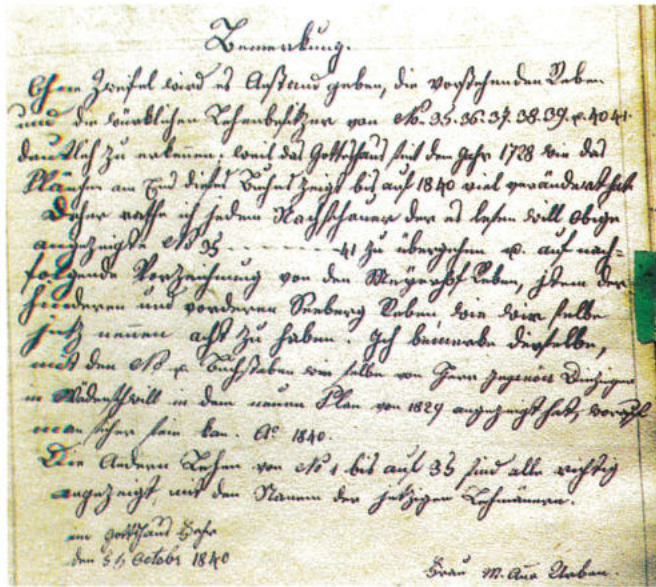 Bemerkung.
Ohne Zweifel wird es Anstand geben, die vorstehenden Reben
und die würklichen Lehenbesitzer von No. 35. 36. 37. 38. 39. u. 40 41.
deutlich zu erkennen; weil das Gotteshaus seit dem Jahr 1728 wie das
Plänchen am End dieses Buches zeigt bis auf 1840 viel verändert hat.
Daher rathe ich jedem Nachschauer der es lesen will obige
angezeigte No 35 - - - - - - - - 41 zu übergehen u. auf nach-
folgende Verzeichnung von den Meyerhof Reben, item der
hinderen und vorderen Seeberg Reben wie wir selbe
jetz nennen acht zu haben. Ich bemerke dieselbe,
mit den No u. Buchstaben wie selbe von Herr Ingenieur
in Wädenschwill in dem neuen Plan von 1829 angezeigt hat, worauf
man sicher sein kan. Ao 1840.
Die Andern Lehen von No 1 bis auf 35 sind alle richtig
angezeigt, mit den Namen der jetzigen Lehmänner.
im Gotthaus
den October 1840
Frau M.